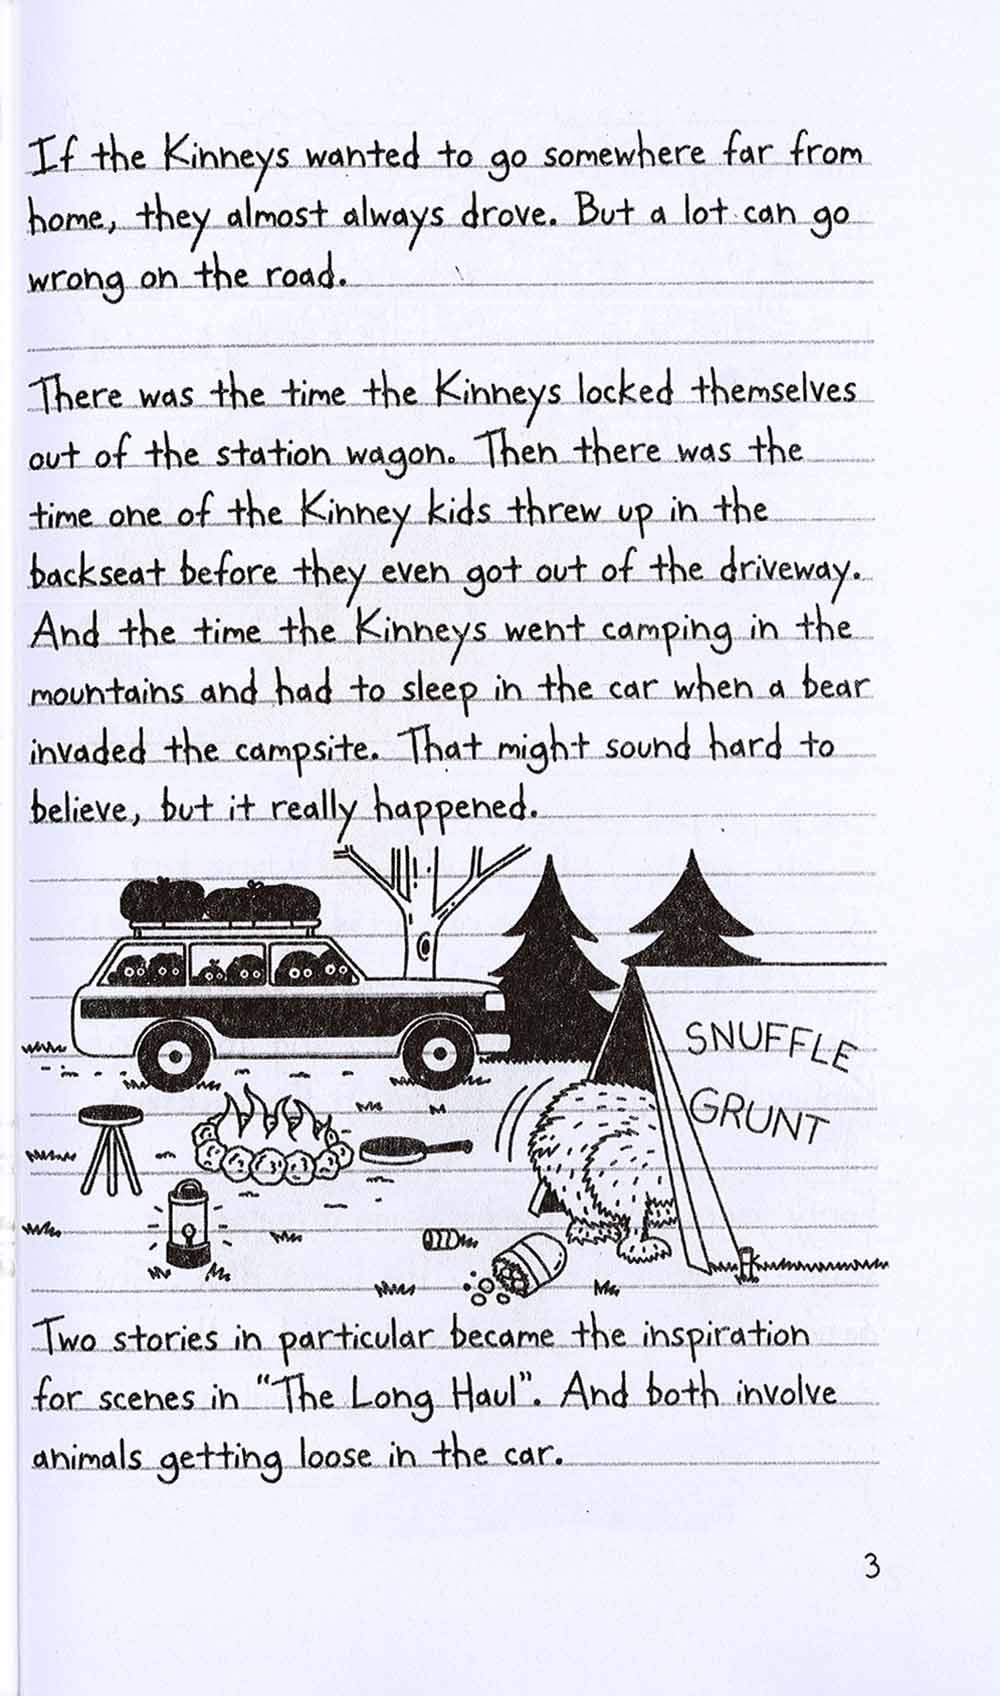 If the Kinneys wanted to go somewhere far from
home, they almost always drove. But a lot can go
wrong on the road.
There was the time the Kinneys locked themselves
out of the station wagon. Then there was the
time one of the Kinney kids threw up in the
backseat before they even got out of the driveway.
And the time the Kinneys went camping in the
mountains and had to sleep in the car when a bear
invaded the campsite. That might sound hard to
believe, but it really happened.
SNUFFLE
GRUNT
Two stories in particular became the inspiration
for scenes in "The Long Haul". And both involve
animals getting loose in the car.
3